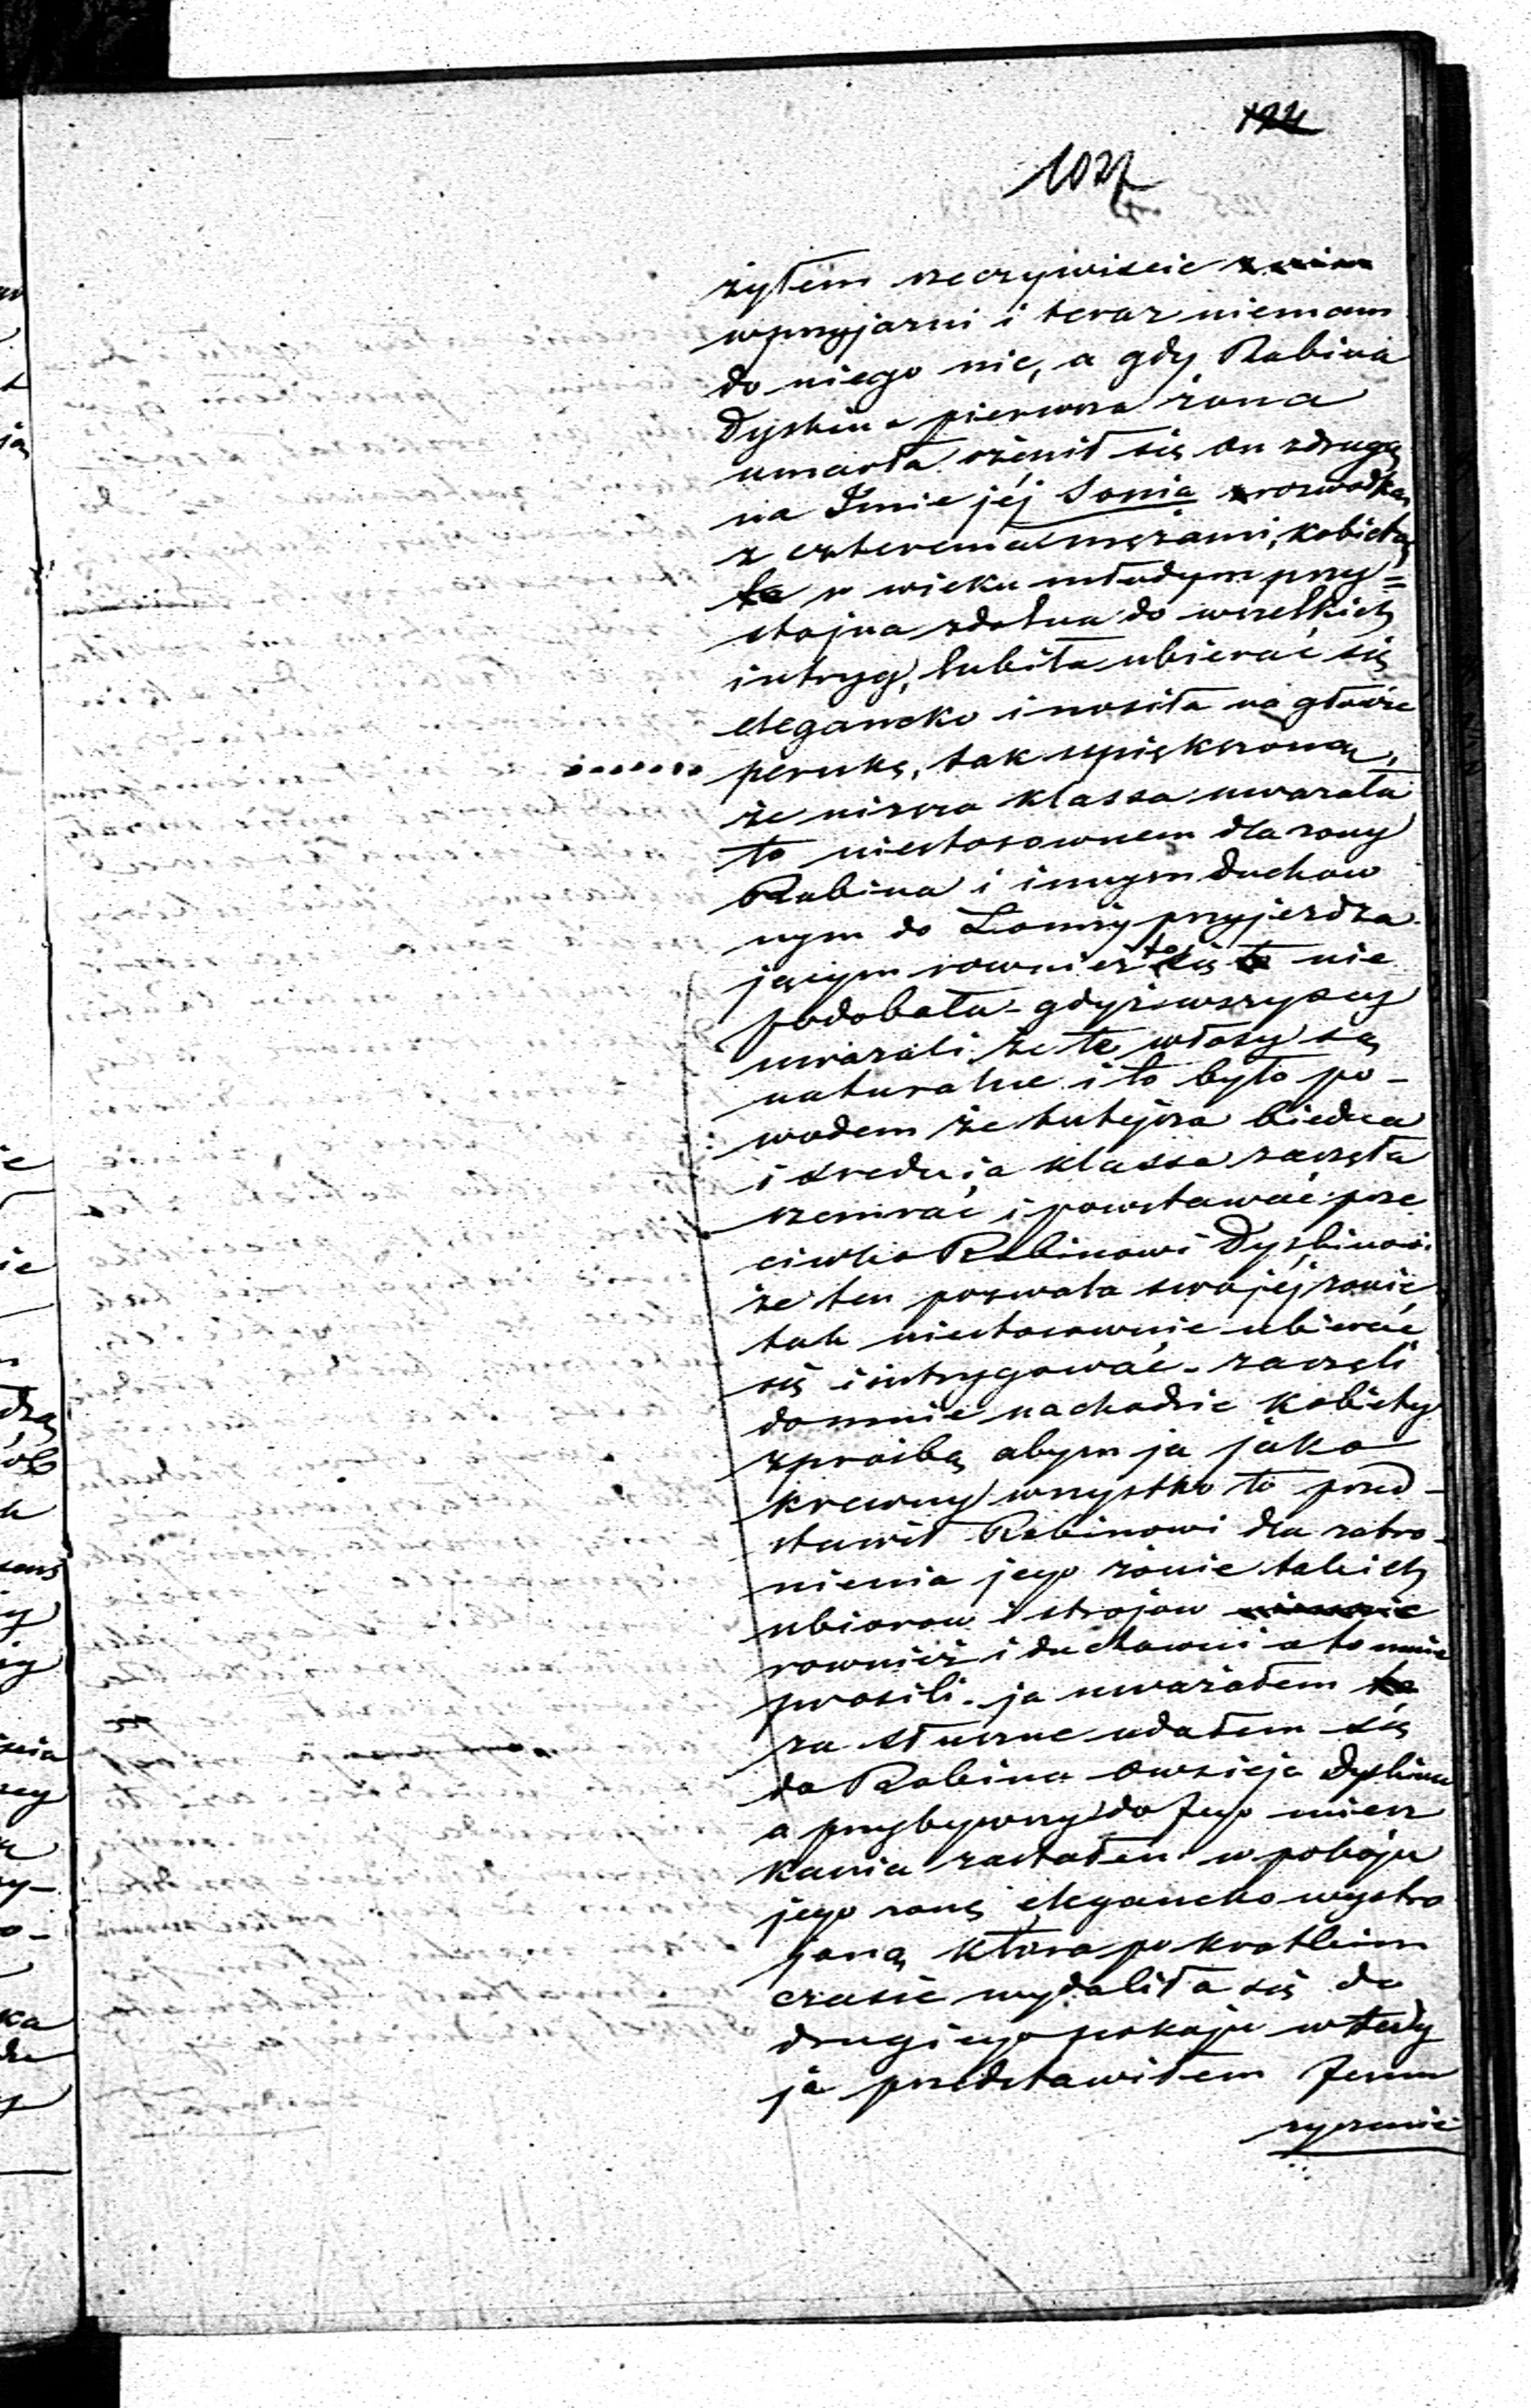 124
1027
żyłem rzeczywiscie z nim
w przyjazni i teraz niemam
do niego nic, a gdy Rabina
Dyskina pierwsza żona
umarła ożenił się on zdrugą
na Imie jéj Sonia rozwodką
z czterema mężami, kobieta
ta w wieku młodym przy=
stojna zdolna do wszelkich
intryg, lubiła ubierać się
elegancko i nosiła na głowie
perukę, tak upiększoną,
że niższa klassa uwarzała
to niestosownem dla żony
Rabina i innym duchow
nym do Łomży przyjezdza
jącym rownież to się nie
podobało - gdyż wszyscy
uwarzali że te włosy są
naturalne i to było po-
wodem że tutejsza biedna
i srednia klassa zaczęła
szemrać i powstawać prze
ciwko Rabinowi Dyskinowi
że ten pozwala swojéj żonie
tak niestosownie ubierać
się i intrygować - zaczęli
domnie nachodzic kobiety
zprośbą abym ja jako
krewny wszystko to przed-
stawił Rabinowi dla zabro-
nienia jego żonie takich
ubiorow i strojow
rownież i duchowni o to mnie
prosili - ja uważałem to
za słuszne udałem się
do Rabina Owsieja Dyskina
a przybywszy do Jego miesz
kania zastałem w pokoju
jego żonę elegancko wystro
joną która po krotkim
czasie wydaliła się do
drugiego pokoju wtedy
ja przedstawiłem Jemu
życzenie